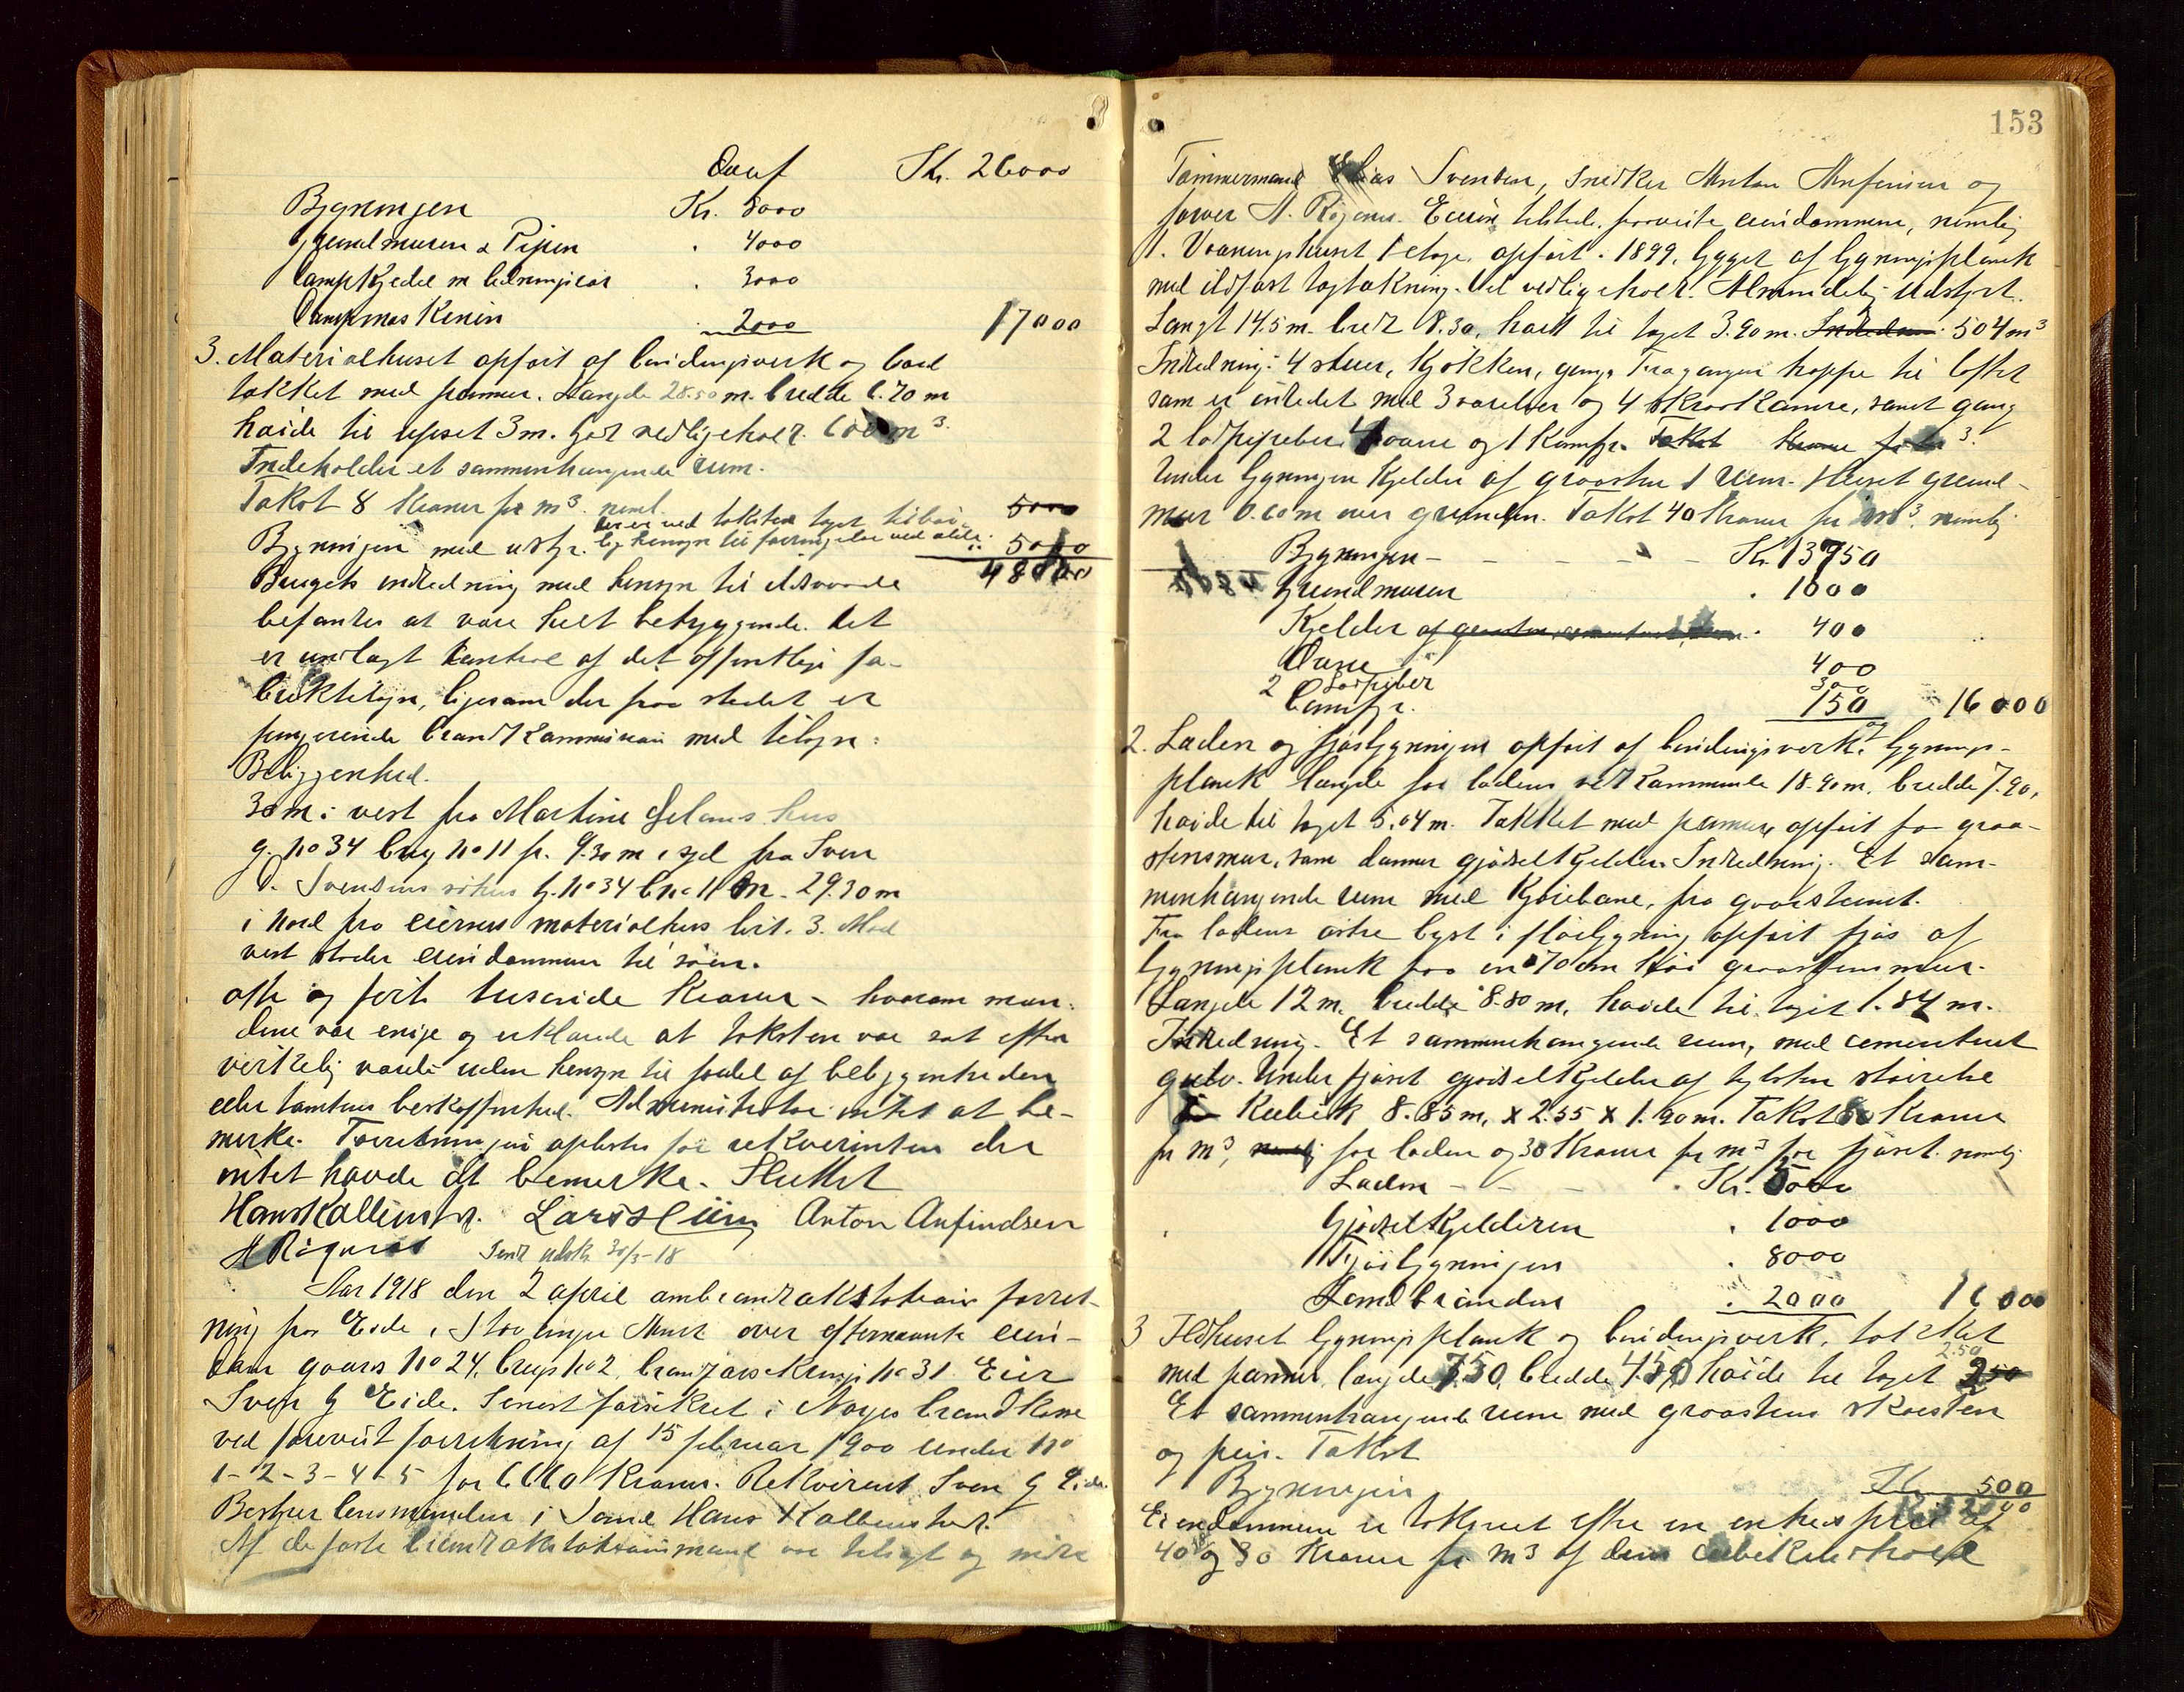 Kr. 26000
Bygningen Kr. 8000
Grundmuren & Pipen . 4000
Dampkjedel m . 3000
2000 17000
3. Materialhuset opført af bindingsverk og bord
tækket med panner. Længde 28.50 m. bredde 6.70 m
høide til 3 m. God vedligeholdt. m³.
Indeholder et sammenhængende rum.
Takst 8 Kroner pr m³. neml. 5000
der er ved taksten taget tilbør-
Bygningen med lig hensyn til forringelse ved ælde. 5000
48000
Brugets indredning med hensyn til ildsvaade
befantes at være helt betryggende. Det
er undlagt kontrol af det offentlige fa-
briktilsyn, ligesom der paa stedet er
fungerende brandkommission med tilsyn.
Beliggenhed.
30 m. i vest fra Martine hus
g. no 34 brug no 11 fr. 9.30 m i syd fra Sven
Svendsens g. no 34 bno 11 29.30 m
i nord fra eierens materialhus lit. 3. Mod
vest støder eiendommen til søen.
otte og førti tusende Kroner - hvorom mæn-
dene var enige og erklærede at taksten var sat efter
virkelig værdi uden hensyn til fordel af beliggenheden
eller tomtens beskaffenhed. Administrator intet at be-
merke. Forretningen oplestes for rekvirenten der
intet havde at bemerke. Sluttet
Hans Kallem Lars Anton Anfindsen
Sendt 30/3-18
Aar 1918 den 2 april ombrandtakstations forret-
ning paa Eide i over efternevnte eien-
dom gaards no 24, brugs no 2, brandforsikrings no 31. Eier
Sven G Eide. Senest forsikret i Norges brandkasse
ved foreviist forretning af 15 februar 1900 under no
1-2-3-4-5 for 6660 Kroner. Rekvirent Sven G Eide.
Bestyrer lensmanden i Sand Hans Kallem
Af de faste brandtakstationsmænd var tilsagt og møtte
153
Tømmermand Elias Svendsen, Snedker Anton Anfinsen og
Eieren tilstede. foreviste eiendommene, nemlig
1. Vaaningshuset 1 etage, opført i 1899, bygget af bygningsplank
med ildfast tagtækning. Vel vedligeholdt. Almindelig udstyrt.
Langt 14.5 m. bredt 8.30, høit til taget 3.90 m. 504 m³
Indredning: 4 stuer, kjøkken, gang. Fra gangen trappe til loftet
som er indredet med 3 værelser og 4 skraakamre, samt gang
2 lodpipeber, 4 ovne og 1 komfyr. Takst
Under bygningen kjelder af graasten 1 rum. Huset grund-
mur 0.60 m over grunden. Takst 40 Kroner pr m³, nemlig
Bygningen - Kr. 13750
Grundmuren . 1000
Kjelder . 400
Ovne 400
2 Lodpiber 300
Comfyr. 150 16000
2. Laden og fjøsbygningen opført af bindingsverk og bygnings-
plank længde for ladens vedkommende 18.90 m, bredde 7.90,
høide til taget 5.04 m. Tækket med panner, opført paa graa-
stensmur, som danner gjødselkjelder. Indredning. Et sam-
menhængende rum med kjørebane, fra graastensmt.
Fra ladens østre bygt i fløibygning opført fjøs af
bygningsplank paa en 70 cm høi graastensmur.
Længde 12 m, bredde 8.80 m, høide til taget 1.84 m.
Indredning. Et sammenhængende rum, med cementeret
gulv. Under fjøset gjødselkjelder af størrelse
Kubik 8.85 m, x 2.55 x 1.90 m. Takst Kroner
pr m³, for laden og 30 Kroner pr m³ for fjøset. nemlig
Laden - - - Kr. 5000
Gjødselkjelderen . 1000
Fjøsbygningen . 8000
. 2000 16000
3 Ildhuset bygningsplank og bindingsverk, tækket
med panner, længde 7.50, bredde 4.50 høide til taget 2.50
Et sammenhængende rum med graastens skorsten
og peis. Takst
Bygningen Kr. 500
Eiendommene er takseret efter en enhedspris af
40 og 30 Kroner pr m³ af dens